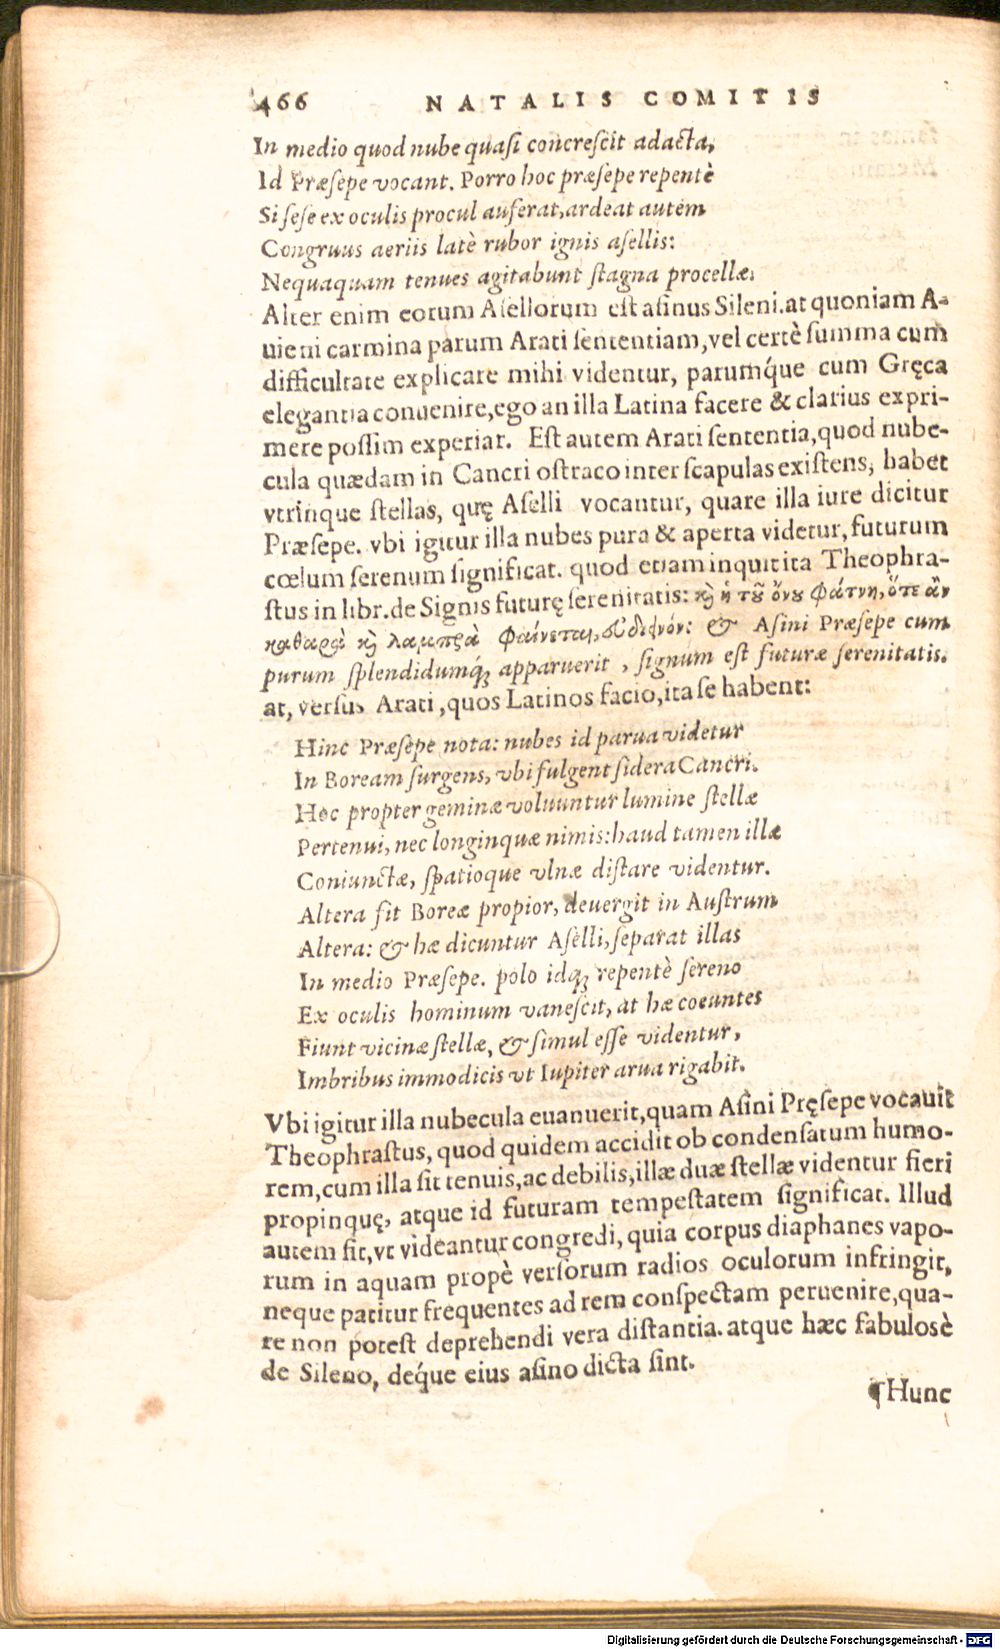 466 NATALIS COMITIS
In medio quod nube quasi concrescit adacta,
Id Præsepe vocant. Porro hoc præsepe repentè
Si sese ex oculis procul auferat, ardeat autem
Congruus aeriis latè rubor ignis asellis:
Nequaquam tenues agitabunt stagna procellæ.
Alter enim eorum Asellorum est asinus Sileni. at quoniam A-
uieni carmina parum Arati sententiam, vel certè summa cum
difficultate explicare mihi videntur, parumq́ue cum Gręca
elegantia conuenire, ego an illa Latina facere & clarius expri-
mere possim experiar. Est autem Arati sententia, quod nube-
cula quædam in Cancri ostraco inter scapulas existens, habet
vtrinque stellas, quę Aselli vocantur, quare illa iure dicitur
Præsepe. vbi igitur illa nubes pura & aperta videtur, futurum
cœlum serenum significat. quod etiam inquit ita Theophra-
stus in libr. de Signis futurę serenitatis: κỳ ἡ τȣ͂ ὄνȣ φάτνη, ὅτε ἂν
καθαρὰ κỳ λαμπρὰ φαίνεται, εὐδιεινόν: & Asini Præsepe cum
purum splendidumq́; apparuerit, signum est futuræ serenitatis.
at, versus Arati, quos Latinos facio, ita se habent:
Hinc Præsepe nota: nubes id parua videtur
In Boream surgens, vbi fulgent sidera Cancri.
Hoc propter geminæ voluuntur lumine stellæ
Pertenui, nec longinquæ nimis: haud tamen illæ
Coniunctæ, spatioque vlnæ distare videntur.
Altera fit Boreæ propior, deuergit in Austrum
Altera: & hæ dicuntur Aselli, separat illas
In medio Præsepe. polo idq́; repentè sereno
Ex oculis hominum vanescit, at hæ coeuntes
Fiunt vicinæ stellæ, & simul esse videntur,
Imbribus immodicis vt Iupiter arua rigabit.
Vbi igitur illa nubecula euanuerit, quam Asini Pręsepe vocauit
Theophrastus, quod quidem accidit ob condensatum humo-
rem, cum illa sit tenuis, ac debilis, illæ duæ stellæ videntur fieri
propinquę, atque id futuram tempestatem significat. Illud
autem fit, vt videantur congredi, quia corpus diaphanes vapo-
rum in aquam propè versorum radios oculorum infringit,
neque patitur frequentes ad rem conspectam peruenire, qua-
re non potest deprehendi vera distantia. atque hæc fabulosè
de Sileno, deq́ue eius asino dicta sint.
¶Hunc
Digitalisierung gefördert durch die Deutsche Forschungsgemeinschaft - DFG